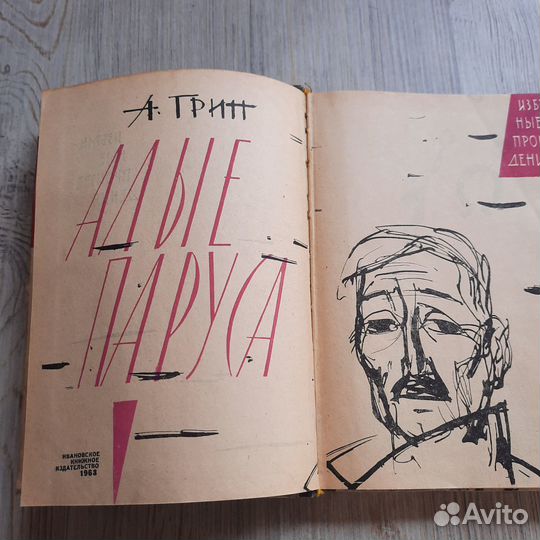 А. ГРИН
АЛЫЕ
ПАРУСА
ИВАНОВСКОЕ
КНИЖНОЕ
ИЗДАТЕЛЬСТВО
1963
ИЗБ
НЫЕ
ПРО
ДЕНИ
Avito